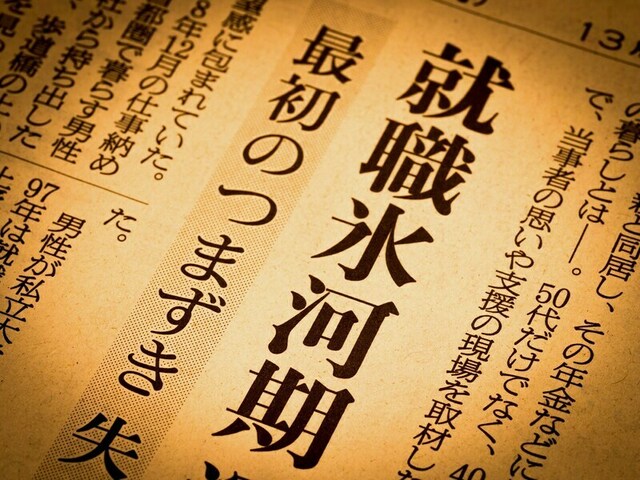 13
と同居し、その年金などに
の暮らしとは――。50代だけでなく、40
で、当事者の思いや支援の現場を取材した
就職氷河期
最初のつまずき 失
感に包まれていた。
8年12月の仕事納め
都圏で暮らす男性
社から持ち出した
、歩道橋の上
た。
男性が私立大
97年は就職